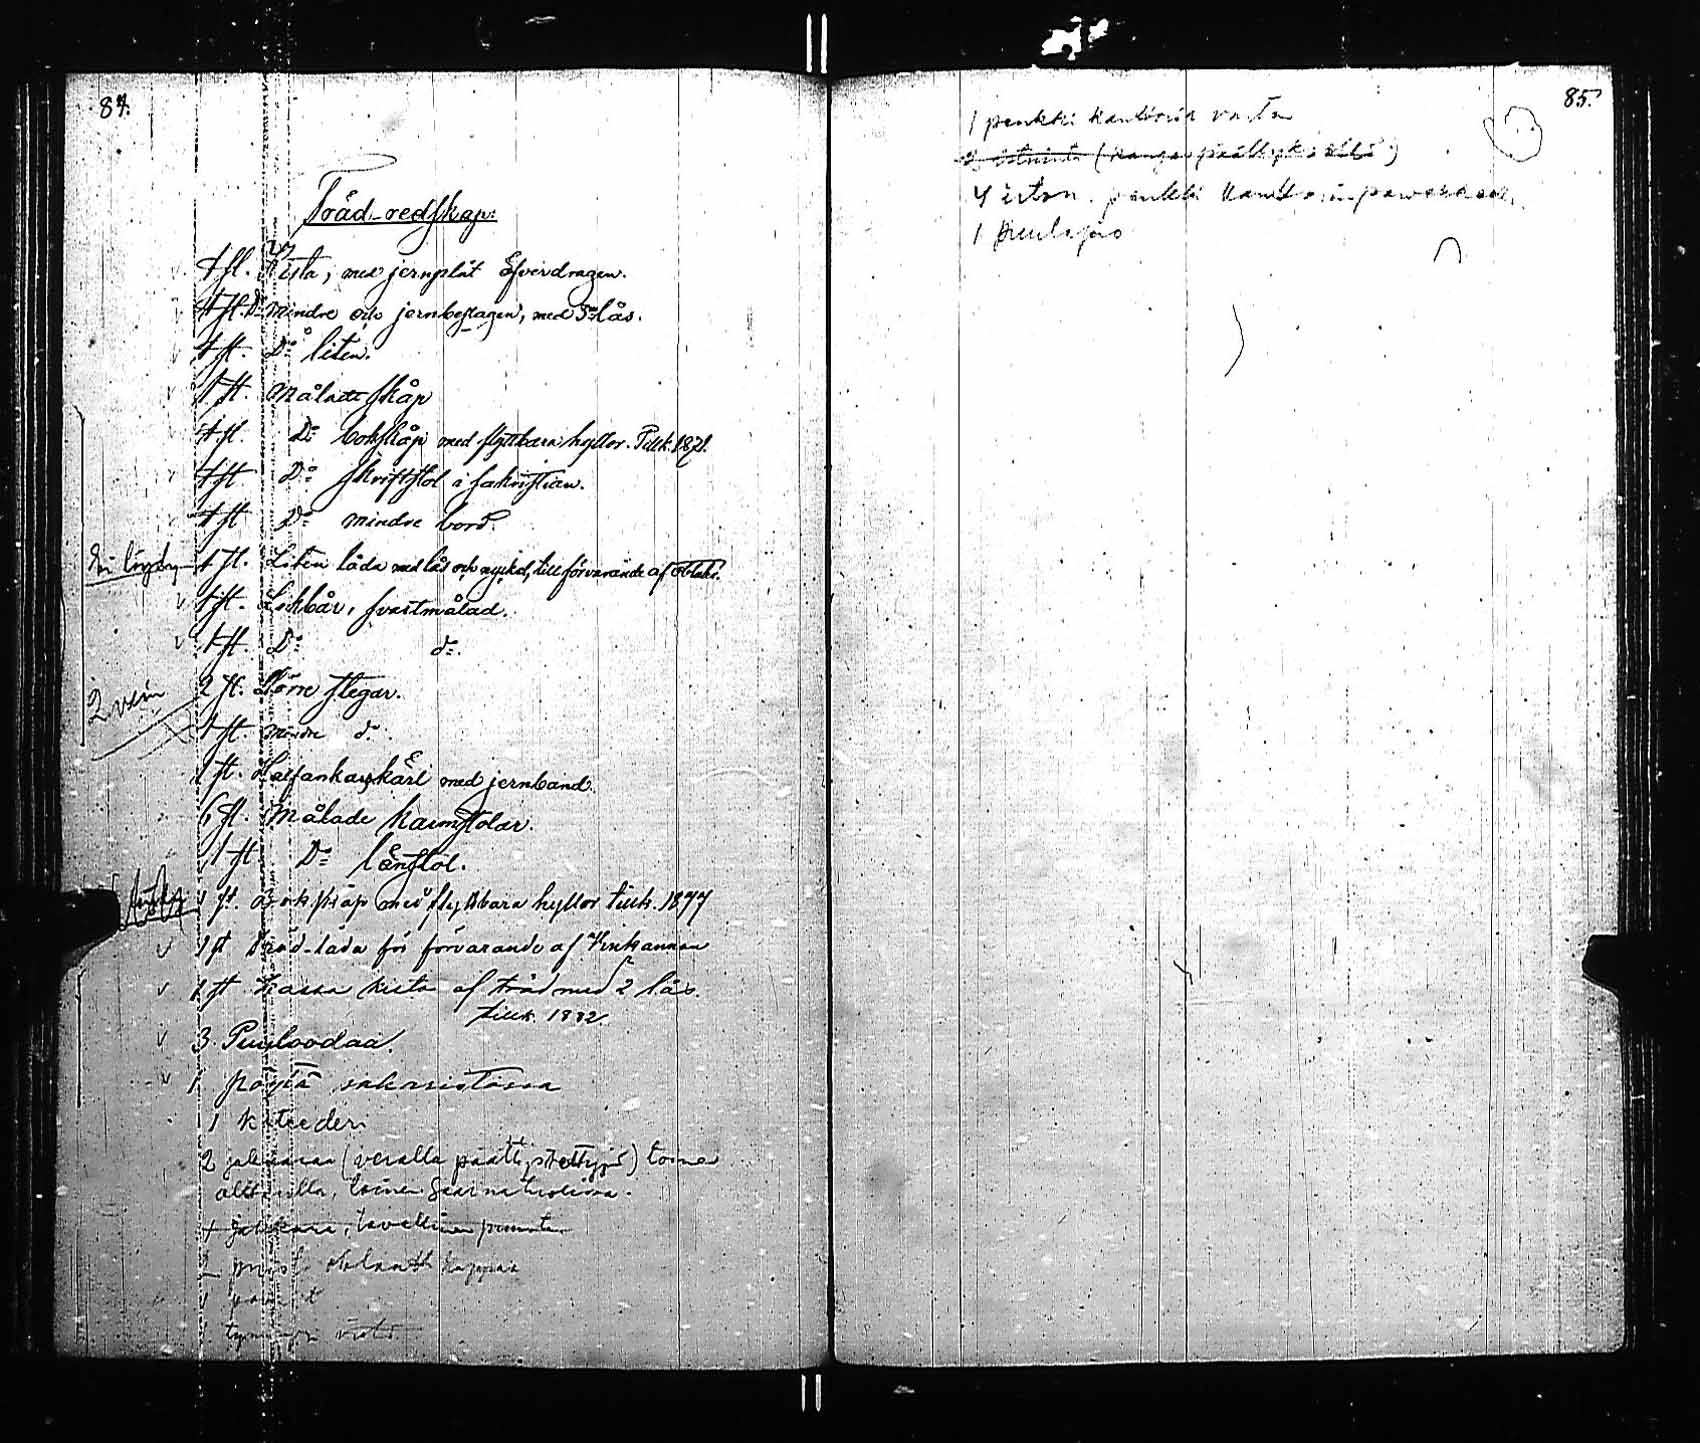 84.
Träd-redskap:
1 st. Kista, med jernplåt öfverdragen.
1 st. Do mindre och jernbeslagen, med 3ne lås.
1 st. Do liten.
1 st. Måladt skåp
1 st. Do bokskåp med flyttbara hyllor. Tillk. 1871.
1 st. Do skriftstol i sakristian.
1 st. Do mindre bord.
Ei löydy 1 st. Liten låda med lås och nyckel, till förvarande af oblater.
1 st. Likbår, svartmålad.
1 st. Do do.
2 st. Större stegar.
2 vein
1 st. mindre do.
1 st. Halfankarskäril med jernband.
6 st. Målade karmstolar.
1 st Do länstol.
1 st. Bokskåp med flyttbara hyllor tillk. 1877
1 st Träd-låda för förvarande af Vinkannan
1 st Kassa kista af träd med 2 lås.
tillk. 1882.
3 Puuloodaa.
1 pöytä sakaristossa
1 kateederi
2 jakkaraa (veralla päällystettyjä) toinen
alttarilla, toinen saarnatuolissa.
1 jakkara, tavallinen
2
85.
1 penkki kanttoria varten
4 penkki
1 puulapio